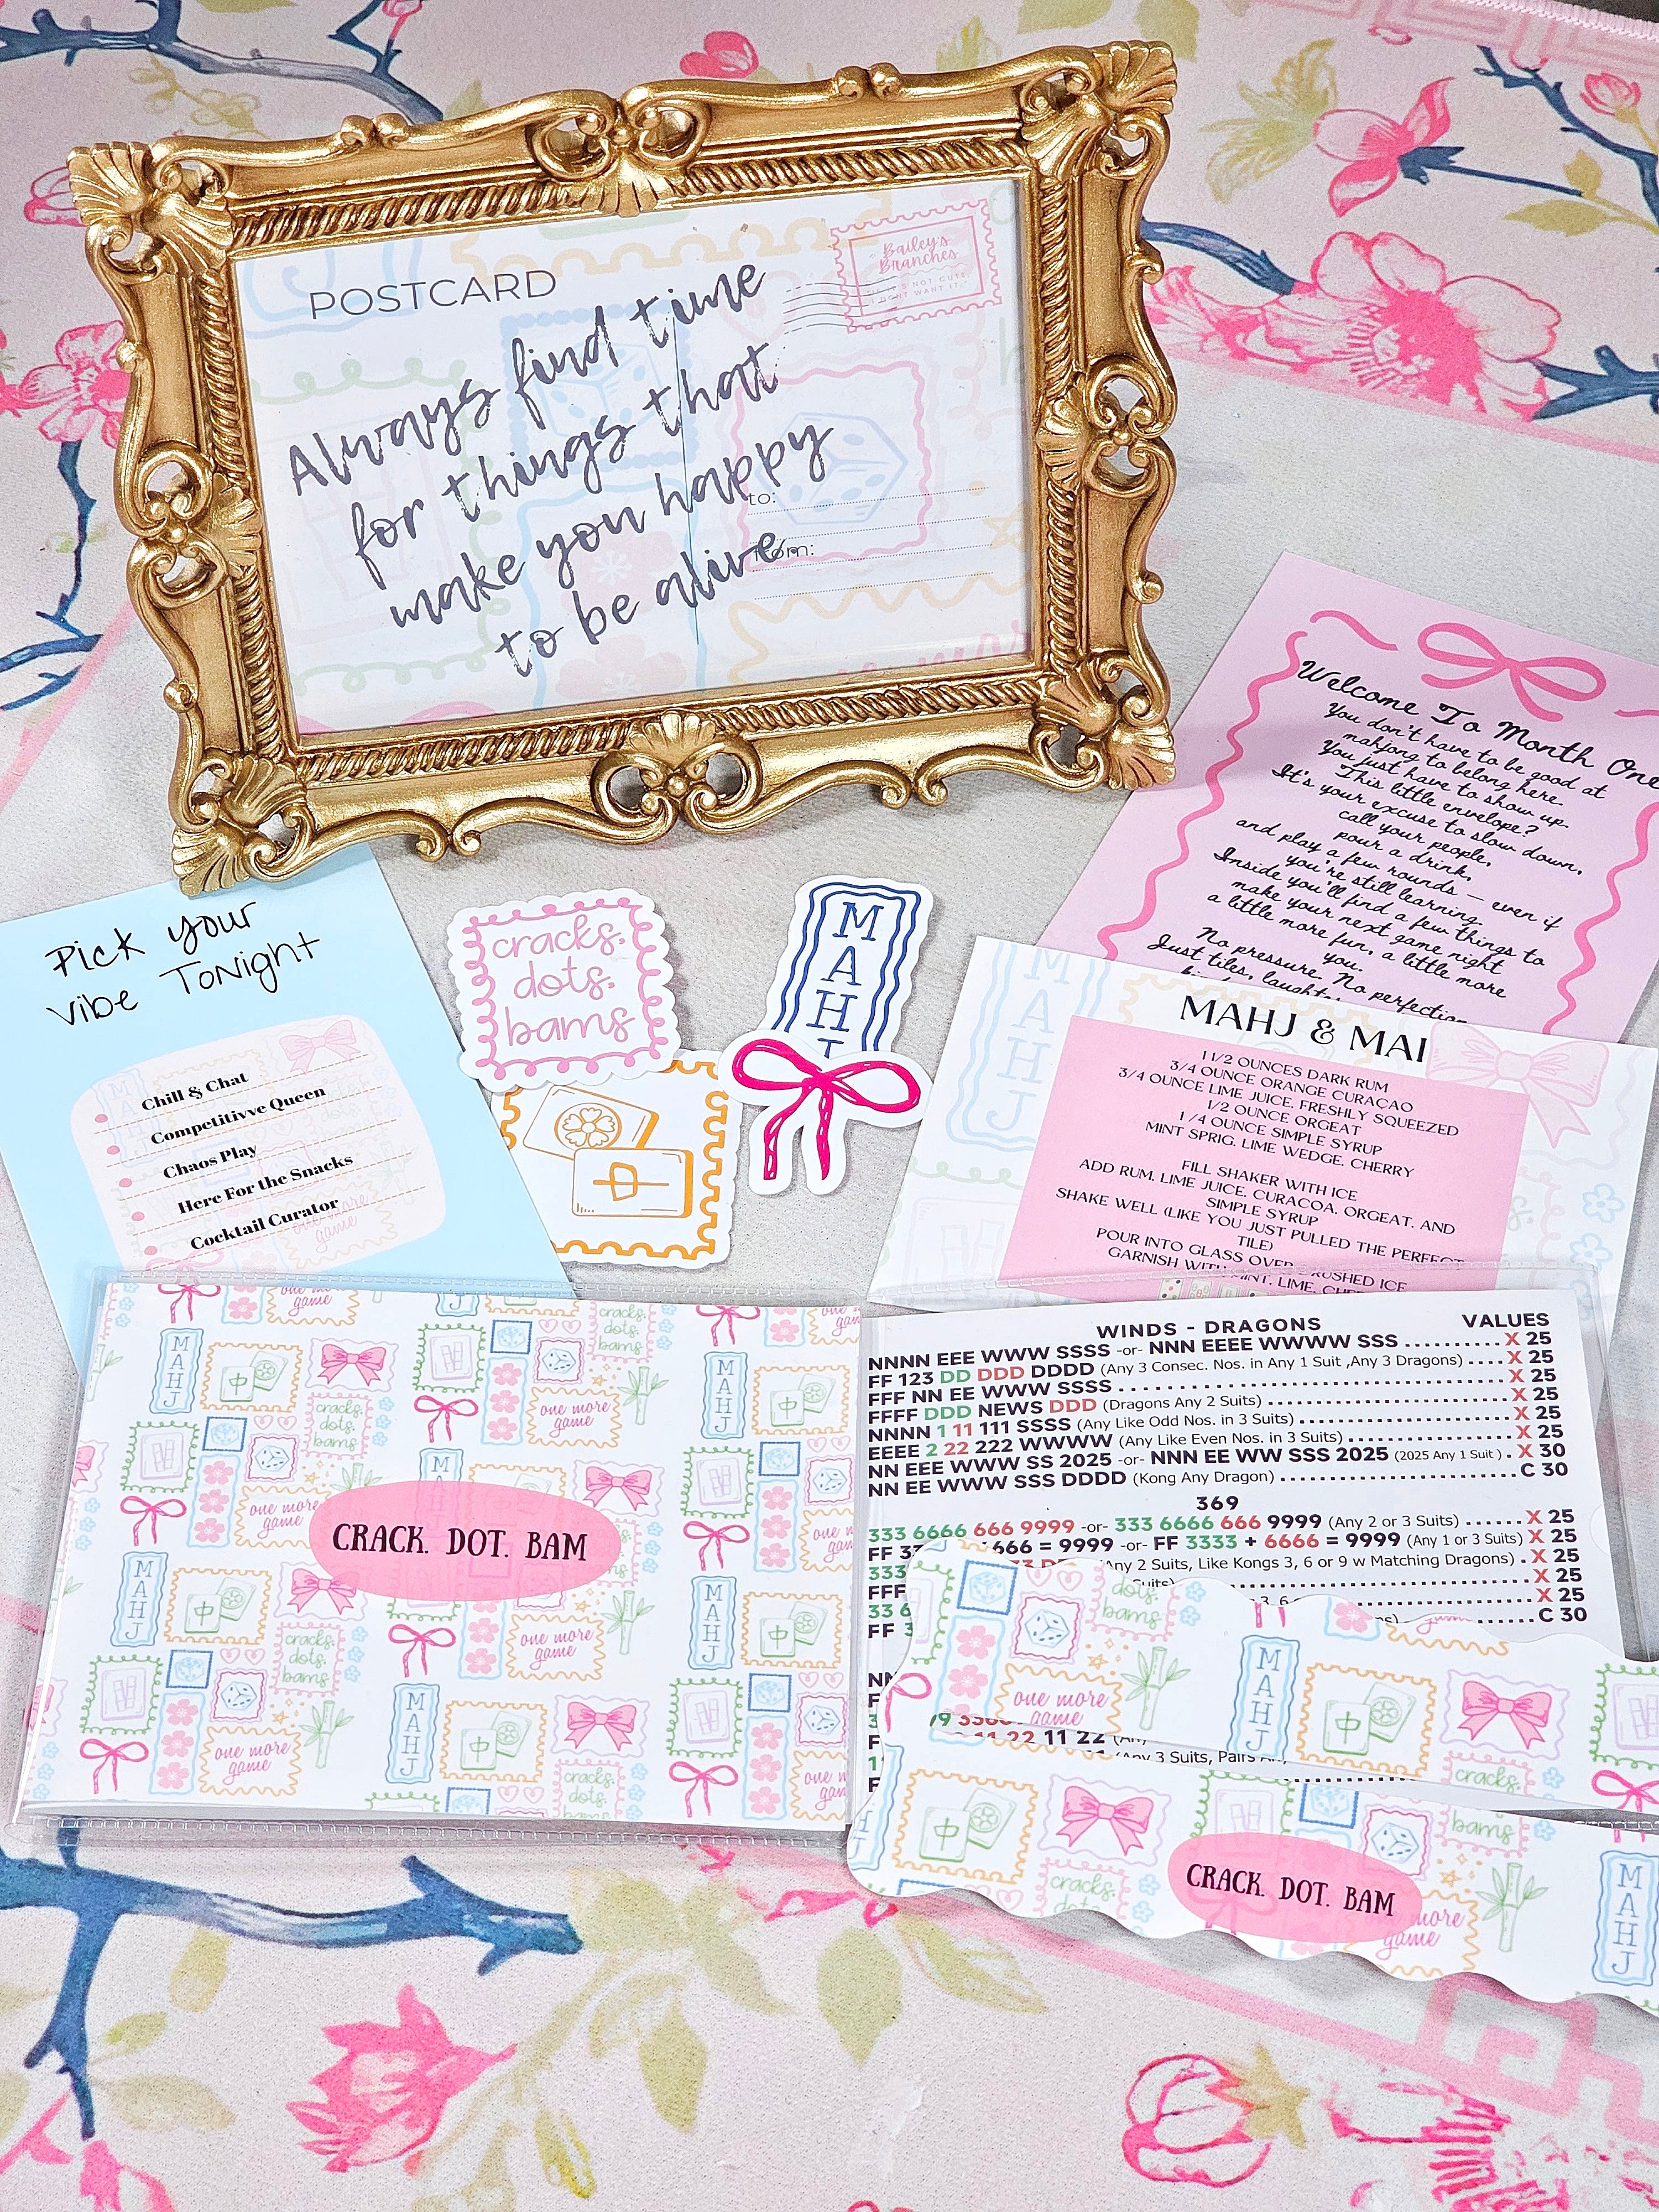 POSTCARD
Bailey's
Branches
I DON'T WANT IT."
Always find time
for things that
make you happy
to be alive
to:
from:
Welcome To Month One
You don't have to be good at
mahjong to belong here.
You just have to show up.
This little envelope?
It's your excuse to slow down,
call your people,
pour a drink,
and play a few rounds — even if
you're still learning.
Inside you'll find a few things to
make your next game night
a little more fun, a little more
you.
No pressure. No perfection.
Just tiles, laughter,
Pick your
vibe Tonight
Chill & Chat
Competitivve Queen
Chaos Play
Here For the Snacks
Cocktail Curator
one more
game
cracks.
dots.
bams
MAHJ
MAHJ
MAHJ & MAI
1 1/2 OUNCES DARK RUM
3/4 OUNCE ORANGE CURAÇAO
3/4 OUNCE LIME JUICE, FRESHLY SQUEEZED
1/2 OUNCE ORGEAT
1/4 OUNCE SIMPLE SYRUP
MINT SPRIG, LIME WEDGE, CHERRY
FILL SHAKER WITH ICE
ADD RUM, LIME JUICE, CURACOA, ORGEAT, AND
SIMPLE SYRUP
SHAKE WELL (LIKE YOU JUST PULLED THE PERFECT
TILE)
POUR INTO GLASS OVER CRUSHED ICE
GARNISH WITH MINT, LIME,
MAHJ
中
cracks.
dots.
bams
one more
game
CRACK. DOT. BAM
WINDS - DRAGONS VALUES
NNNN EEE WWW SSSS -or- NNN EEEE WWWW SSS ......... X 25
FF 123 DD DDD DDDD (Any 3 Consec. Nos. in Any 1 Suit ,Any 3 Dragons) .... X 25
FFF NN EE WWW SSSS ......... X 25
FFFF DDD NEWS DDD (Dragons Any 2 Suits) ......... X 25
NNNN 1 11 111 SSSS (Any Like Odd Nos. in 3 Suits) ......... X 25
EEEE 2 22 222 WWWW (Any Like Even Nos. in 3 Suits) ......... X 25
NN EEE WWW SS 2025 -or- NNN EE WW SSS 2025 (2025 Any 1 Suit ) . X 30
NN EE WWW SSS DDDD (Kong Any Dragon) ......... C 30
369
333 6666 666 9999 -or- 333 6666 666 9999 (Any 2 or 3 Suits) ...... X 25
FF 6666 = 9999 -or- FF 3333 + 6666 = 9999 (Any 1 or 3 Suits) X 25
333 (Any 2 Suits, Like Kongs 3, 6 or 9 w Matching Dragons) . X 25
FFF Suits) ......... X 25
33 6 ......... C 30
FF
11 22 11 22
(Any 3 Suits,
dots.
bams
one more
game
MAHJ
中
cracks.
中
cracks.
dots.
bams
CRACK. DOT. BAM
more
game
MAHJ